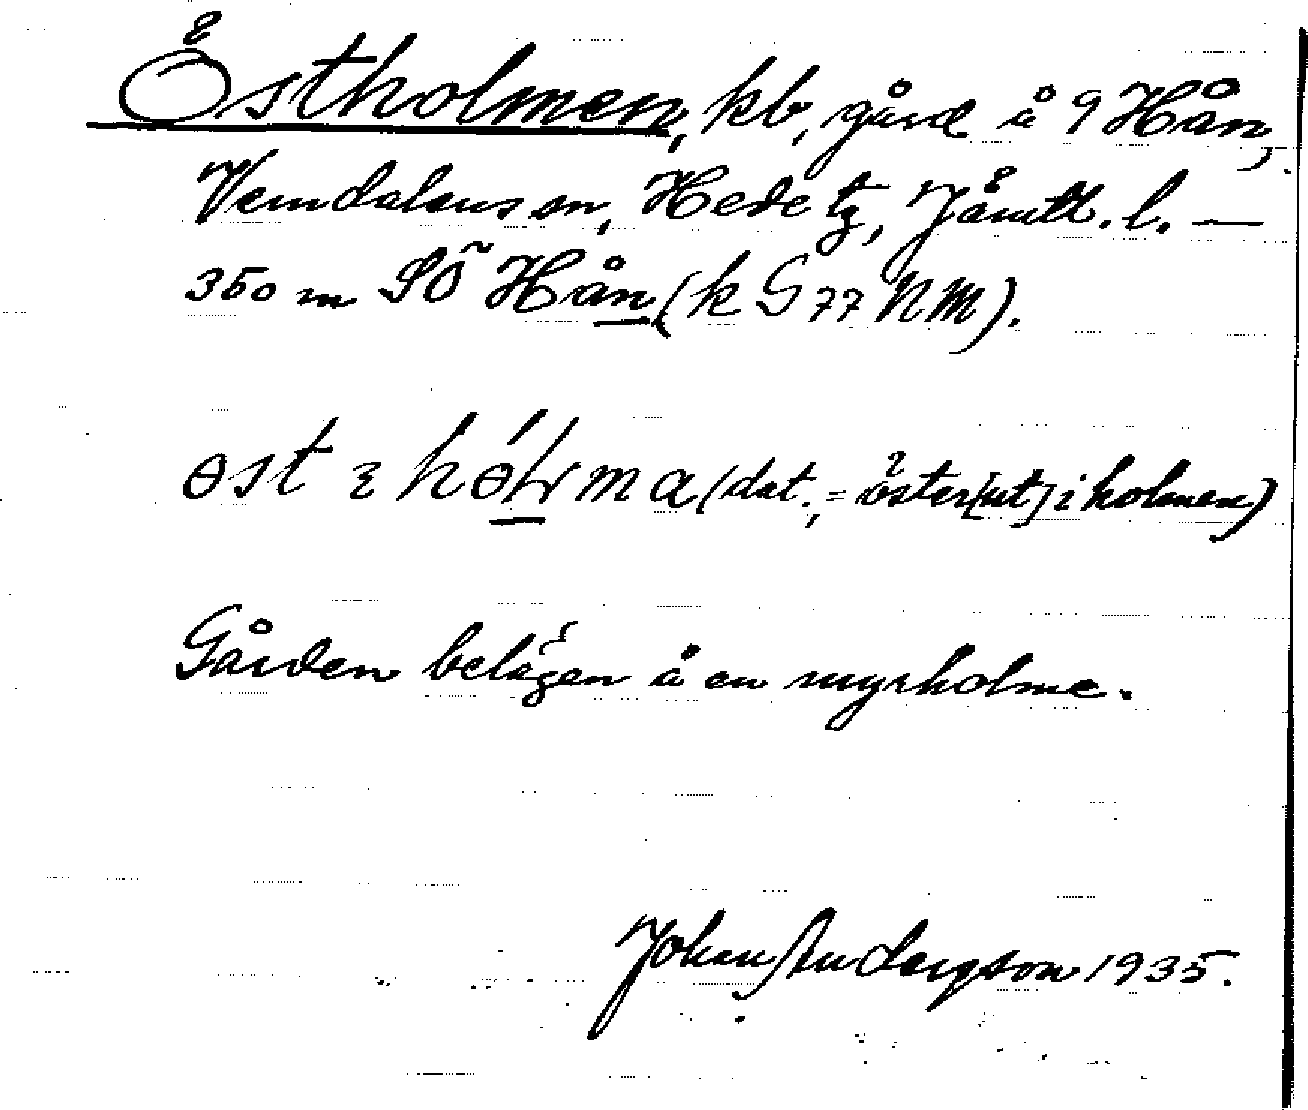 Östholmen, kb, gård å 9 Hån,
Vemdalens sn, Hede tg, Jämtl. l. —
350 m SÖ Hån (k G 77 NM).
(dat., = öster[ut] i holmen)
Gården belägen å en myrholme.
Johan Andersson 1935.